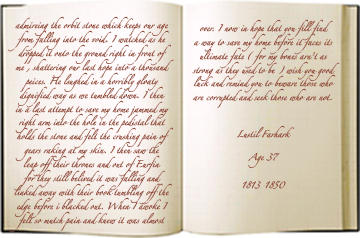 admireing the orbit stone which keeps our age
from falling into the void. I watched as he
dropped it onto the ground right in front of
me , shattering our last hope into a thousand
peices. He laughed in a horribly gloaty
dignified way as we tumbled down. I then
in a last attempt to save my home jammed my
right arm into the hole in the pedistal that
holds the stone and felt the crushing pain of
gears raking at my skin. I then saw the
leap off their thrones and out of Furfin
for they still belived it was falling and
linked away with their book tumbling off the
edge before i blacked out. When I awoke I
felt so mutch pain and knew it was almost
over. I now in hope that you fill find
a way to save my home before it faces its
ultimate fate ( for my bones arn't as
strong as they used to be ) wish you good
luck and remind you to beware those who
are corrupted and seek those who are not.
Lustil Farhark
Age 37
1813 1850